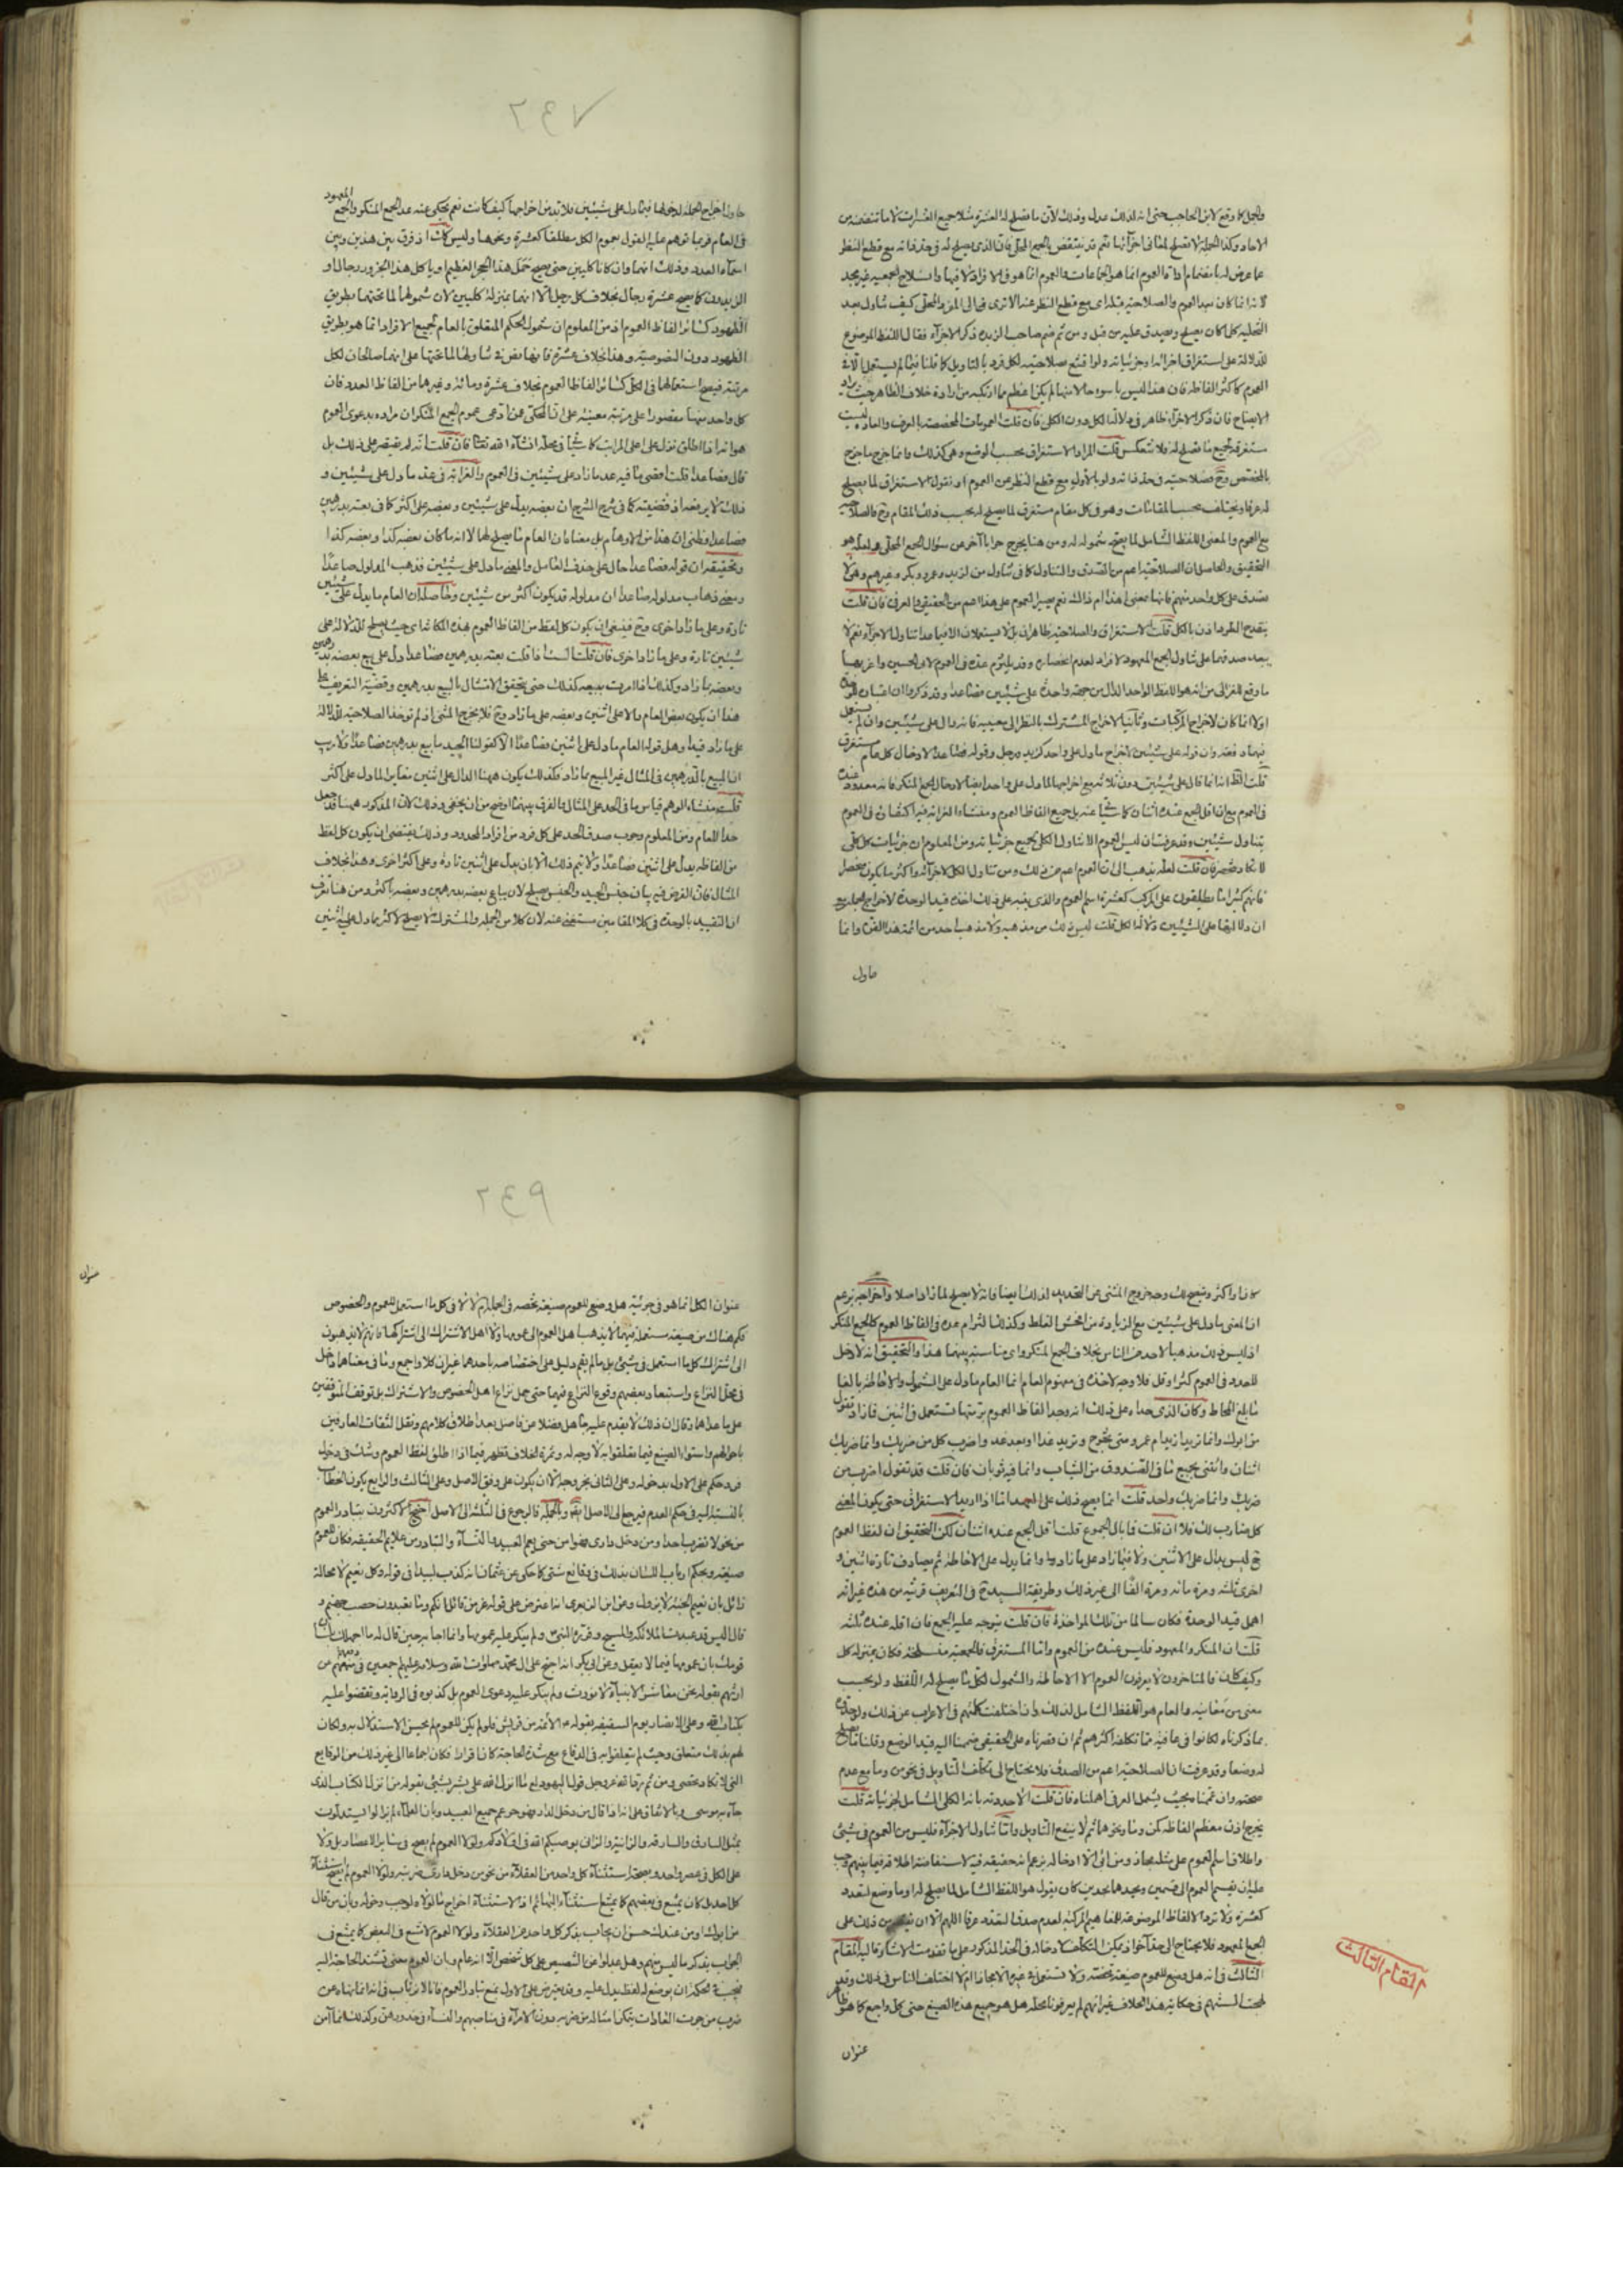 والجل كما وقع لابن الحاجب حتى انه لذلك عدل وذلك لان ما تصلح له العشرة مثلا جميع العشرات لا ما تتضمنه من
الآحاد وكذا الجملة لا تصلح لها في اجزائها نعم قد ينتقض بالجمع المحلى فان الذي يصلح له في حد ذاته مع قطع النظر
عما عرض له بانضمام اداة العموم انما هو الجماعات والعموم انما هو في الافراد لا فيها وانسلاخ الجمعية غير مجد
لانه انما كان بعد العموم والصلاحية قبله اي مع قطع النظر عنه الا ترى في المفرد المحلى كيف تناول بعد
التحلية كل ما كان يصلح ويصدق عليه من قبل ومن ثم ضم صاحب الزبدة ذكر الاجزاء فقال اللفظ الموضوع
للدلالة على استغراق اجزائه او جزئياته
العموم كاكثر الفاظه فان هذا ليس باسوء حالا منها لم يكن اعظم مما ارتكبه من ارادة خلاف الظاهر حيث راد
الايضاح فان ذكر الاجزاء ظاهر في دلالتها الكل دون الكلي فان قلت العمومات المخصصة بالعرف والعادة ليست
مستغرقة لجميع ما تصلح له فلا تنعكس قلت المراد الاستغراق بحسب الوضع وهي كذلك وانما خرج ما خرج
بالمخصص وح فصلاحيته في حد ذاته ولو بالاول مع قطع النظر عن العموم او نقول الاستغراق لما يصلح
له عرفا ويختلف بحسب المقامات وهو في كل مقام مستغرق لما يصلح له بحسب ذلك المقام وح فالصلاحية
مع العموم والمعنى اللفظ الشامل لما يصح شموله له ومن هنا يخرج جوابا آخر عن سؤال الجمع المحلى ولعله هو
التحقيق والحاصل ان الصلاحية اعم من الصدق والتناول كما في تناول من لزيد وعمرو وبكر وغيرهم وهي لا
تصدق على كل واحد منهم فانها بمعنى اهذا ام ذاك نعم يصير العموم على هذا اعم من الحقيقي والعرفي فان قلت
ينقدح الطرد اذن بالكل قلت الاستغراق والصلاحية ظاهران بل لا يستعملان الا فيما عدا تناول الاجزاء نعم لا
يبعد صدقهما على تناول الجمع المعهود لافراده لعدم انحصاره وقد يلتزم عده في العموم لابي الحسين واغرب منهما
ما وقع للغزالي من انه هو اللفظ الواحد الدال من جهة واحدة على شيئين فصاعدا وقد ذكروا ان اعتبار الوحدة
اولا انما كان لاخراج المركبات وثانيا لاخراج المشترك بالنظر الى معنييه فانه دال على شيئين وان لم يستعمل
فيهما دفعة وان قوله على شيئين لاخراج ما دل على واحد كزيد ورجل وقوله فصاعدا لادخال كل عام مستغرق
قلت الظ انه انما قال على شيئين دون ثلاثة مع اخراجها لما دل على واحد ايضا لادخال الجمع المنكر فانه معدود عنده
في العموم مع ان اقل الجمع عنده اثنان
يتناول شيئين وقد عرفت ان ليس العموم الا تناول الكلي لجميع جزئياته ومن المعلوم ان جزئيات كل كلي
لا تكاد تنحصر فان قلت لعله يذهب الى ان العموم اعم من ذلك ومن تناول الكل لاجزائه واكثر ما يكون منحصرا
فانهم كثيرا ما يطلقون على المركب كعشرة اسم العموم والذي ينبه على ذلك اخذه قيد الوحدة لاخراج الجمل مع
ان دلالتها على الشيئين دلالة الكل قلت ليس ذلك من مذهبه ولا مذهب احد من ائمة هذا الفن وانما
حاول
٢٤٧
حاول اخراج الجملة لدخولها فيما دل على شيئين فلا بد من اخراجها كيف كانت نعم يحكى عنه عد الجمع المنكر والجمع المعهود
في العام فربما توهم عليه القول بعموم الكل مطلقا كعشرة ونحوها وليس كك اذ فرق بين هذين وبين
اسماء العدد وذلك انهما وان كانا كليين حتى يصح حمل هذا الحجر العظيم او ياكل هذا الجزور رجال او
الزيدون كما يصح عشرة رجال بخلاف كل رجل الا انهما بمنزلة كليين لان شمولهما لما تحتهما بطريق
الظهور كسائر الفاظ العموم اذ من المعلوم ان شمول الحكم المتعلق بالعام لجميع الافراد انما هو بطريق
الظهور دون النصوصية وهذا بخلاف عشرة فانها نص في تناولها لما تحتها على انهما صالحان لكل
مرتبة فيصح استعمالهما في الكل كسائر الفاظ العموم بخلاف عشرة ومائة وغيرها من الفاظ العدد فان
كل واحد منها مقصور على مرتبة معينة على ان المحكي عمن ادعى عموم الجمع المنكر ان مراده بدعوى العموم
هو انه اذا اطلق نزل على اعلى المراتب كما سياتي في محله انشاء الله تعالى فان قلت انه لم يقتصر على ذلك بل
قال فصاعدا قلت اقصى ما فيه عد ما زاد على شيئين في العموم والغرابة في عد ما دل على شيئين و
ذلك لا يرفعه اذ قضيته كما في شرح الشرح ان بعضه يدل على شيئين وبعضه على اكثر كما في بعته بدرهمين
فصاعدا وظني ان هذا من الاوهام بل معناه ان العام ما يصلح لهما لا انه ما كان بعضه كذا وبعضه كذا
وتحقيقه ان قوله فصاعدا حال على حذف العامل والمعنى ما دل على شيئين فذهب المدلول صاعدا
ومعنى ذهاب مدلوله صاعدا ان مدلوله قد يكون اكثر من شيئين وحاصله ان العام ما يدل على شيئين
تارة وعلى ما زاد اخرى وح فينبغي ان يكون كل لفظ من الفاظ العموم بهذه المكانة اي حيث يصلح للدلالة على
شيئين تارة وعلى ما زاد اخرى فان قلت الست اذا قلت بعته بدرهمين فصاعدا دل على بيع بعضه بدرهمين
وبعضه بما زاد وكذلك اذا امرت ببيعه كذلك حتى يتحقق الامتثال بالبيع بدرهمين وقضية التعريف على
هذا ان يكون بعض العام دالا على اثنين وبعضه على ما زاد وح فلا يخرج المثنى اذ لم توخذ الصلاحية للدلالة
على ما زاد قيدا وهل قوله العام ما دل على اثنين فصاعدا الا كقولنا الجيد ما بيع بدرهمين فصاعدا ولا ريب
ان المبيع بالدرهمين في المثال غير المبيع بما زاد فكذلك يكون ههنا الدال على اثنين مغايرا لما دل على اكثر
قلت منشاء الوهم قياس ما في الحد على المثال والفرق بينهما اوضح من ان يخفى وذلك لان المذكور ههنا قد جعل
حدا للعام ومن المعلوم وجوب صدق الحد على كل فرد من افراد المحدود وذلك يقتضي ان يكون كل لفظ
من الفاظه يدل على اثنين فصاعدا ولا يتم ذلك الا بان يدل على اثنين تارة وعلى اكثر اخرى وهذا بخلاف
المثال فان الغرض فيه بيان جنس الجيد والجنس يصلح لان يباع بعضه بدرهمين وبعضه باكثر ومن هنا تعرف
ان التقييد بالوحدة في كلا المقامين مستغنى عنه لان كلا من الجملة والمشترك لا يصلح لاكثر مما دل على اثنين
لاذا واكثر وتصحح لك وجه خروج المثنى عن التحديد
ان المعنى ما دل على شيئين مع الزيادة من افحش الغلط وكذلك التزام عده في الفاظ العموم كالجمع المنكر
اذ ليس ذلك مذهبا لاحد من الناس بخلاف الجمع المنكر واي مناسبة بينهما هذا والتحقيق انه لا دخل
للعدد في العموم كثر او قل فلا وجه لاخذه في مفهوم العام انما العام ما دل على الشمول والاحاطة بالغا
ما بلغ المحاط وكان الذي حداه على ذلك انه وجد الفاظ العموم برمتها تستعمل في اثنين فما زاد تقول
من ابوك وانما تريد ازيد ام عمرو ومتى تخرج وتريد غدا او بعد غد واضرب كل من ضربك وانما ضربك
اثنان وائتني بجميع ما في الصندوق من الثياب وانما فيه ثوبان فان قلت قد تقول اضرب من
ضربك وانما ضربك واحد قلت انما يصح ذلك على العهد اما اذا اريد الاستغراق حتى يكون المعنى
كل ضارب لك فلا ان قلت فما بال الجموع قلنا اقل الجمع عنده اثنان لكن التحقيق ان لفظ العموم
ح ليس بدال على الاثنين ولا فيما زاد على ما زاد وانما يدل على الاحاطة ثم يصادف تارة اثنين و
اخرى ثلثة ومرة مائة ومرة الفا الى غير ذلك وطريقة السيد ح في التعريف قريبة من هذه غير انه
اهمل قيد الوحدة فكان سالما من تلك المواخذة فان قلت يتوجه عليه الجمع فان اقله عنده ثلثة
قلت ان المنكر والمعهود فليس عنده من العموم واما المستغرق فالجمعية منسلخة فكان بمنزلة كل
وكيف كان فالمتاخرون لا يعرفون العموم الا الاحاطة والشمول لكل ما يصلح له اللفظ ولو بحسب
معنى من معانيه والعام هو اللفظ الشامل لذلك وان اختلفت كلمتهم في الاعراب عن ذلك ولو حدوه
بما ذكرناه لكانوا في عافية مما تكلفه اكثرهم ثم ان قصرناه على الحقيقي ضممنا اليه قيد الوضع وقلنا ما يصلح
له وضعا وقد عرفت ان الصلاحية اعم من الصدق فلا يحتاج الى تكلف التاويل في نحو من وما مع عدم
صحته وان عممناه بحيث يشمل العرفي اهملناه فان قلت الا حددته بانه الكلي الشامل لجزئياته قلت
يخرج اذن معظم الفاظه كمن وما ونحوهما ثم لا ينفع التاويل واما تناول الاجزاء فليس من العموم في شيء
واطلاق اسم العموم على مثله مجاز ومن ابى الا ادخاله بزعم انه حقيقة فيه لاستفاضة اطلاقه فيما بينهم وجب
عليه ان يقسم العموم الى قسمين ويحدهما بحدين كان يقول هو اللفظ الشامل لما يصلح له او ما وضع لمتعدد
كعشرة ولا ترد الالفاظ الموضوعة للمفاهيم المركبة لعدم صدق التعدد عرفا اللهم الا ان يمنع من ذلك على
الجمع المعهود فلا يحتاج الى حد آخر اذ يمكن التكلف لادخاله في الحد المذكور على ما تقدمت الاشارة اليه المقام
الثالث في انه هل وضع للعموم صيغة تخصه ولا تستعمل في غيره الا مجازا ام لا اختلف الناس في ذلك وقد
لهجت السنتهم في حكاية هذا الخلاف غير انهم لم يعرفونا محله هل هو جميع هذه الصيغ حتى كل واجمع كما هو ظاهر
المقام الثالث
عنوان
٢٤٩
عنوان
عنوان الكل انما هو في جزئية هل وضع للعموم صيغة تخصه في الجملة ام لا لا في كل ما استعمل للعموم والخصوص
فكم هناك من صيغة مستعملة فيهما لا يذهب اهل العموم الى عمومها ولا اهل الاشتراك الى اشتراكها فانهم لا يذهبون
الى اشتراك كل ما استعمل في شيئين بل ما لم يقم دليل على اختصاصه باحدهما غير ان كلا واجمع وما في معناهما داخل
في محل النزاع واستبعاد بعضهم وقوع النزاع فيهما حتى حمل نزاع اهل الخصوص والاشتراك بل توقف المتوقفين
على ما عداها وقال ان ذلك لا يقدم عليه جاهل فضلا عن فاضل بعد اطلاق كلامهم ونقل الثقات العارفين
باحوالهم واستواء الصيغ فيما تعلقوا به لا وجه له وثمرة الخلاف تظهر فيما اذا اطلق لفظ العموم وشك في دخول
فرد حكم على الاول بدخوله وعلى الثاني بخروجه الا ان يكون على وفق الاصل وعلى الثالث والرابع يكون الخطاب
بالنسبة اليه في حكم العدم فيرجع الى الاصل ايضا وبالجملة فالرجوع في الثلثة الى الاصل احتج الاكثرون بتبادر العموم
من نحو لا تضرب احدا ومن دخل داري فهو حر ومتى جاءكم العبيد والنساء والتبادر من علائم الحقيقة فكان للعموم
صيغة وبحكم ارباب اللسان بذلك في وقائع شتى كما حكي عن عثمان انه كذب لبيدا في قوله وكل نعيم لا محالة
زائل بان نعيم الجنة لا يزول وعن ابن الزبعرى انه اعترض على قوله عز من قائل انكم وما تعبدون حصب جهنم و
قال اليس قد عبدت الملائكة والمسيح وقرره النبي ص ولم ينكر عليه عمومها وانما اجابه حين قال له ما اجهلك بلسان
قومك بان عمومها فيما لا يعقل وعن ابي بكر انه احتج على آل محمد صلوات الله وسلامه عليهم اجمعين في منعهم عن
ارثهم بقوله نحن معاشر الانبياء لا نورث ولم ينكر عليه دعوى العموم بل كذبوه في الرواية ونقضوا عليه
بكتاب الله وعلى الانصار يوم السقيفة بقوله ص الائمة من قريش فلو لم يكن للعموم لم يحسن الاستدلال به ولكان
لهم بذلك متعلق وحيث لم يتعلقوا به في الدفاع مع شدة الحاجة كان اقرارا فكان اجماعا الى غير ذلك من الوقايع
التي لا تكاد تحصى ومن ثم رد الله عز وجل قول اليهود لع ما انزل الله على بشر من شيء بقوله من انزل الكتاب الذي
جاء به موسى وبالاتفاق على انه اذا قال من دخل الدار فهو حر عم جميع العبيد وبان العلماء لم يزالوا يستدلون
بمثل السارق والسارقة والزانية والزاني ويوصيكم الله في اولادكم ولولا العموم لم يصح في سائر الاعصار بل ولا
على الكل في عصر واحد وبصحة استثناء كل واحد من العقلاء من نحو من دخل داري ضربته ولولا العموم لم يصح استثناء
كل احد بل كان يمتنع في بعضهم كما يمتنع استثناء البهائم اذ الاستثناء اخراج ما لولاه لوجب دخوله وبان من قال
من ابوك او من عندك حسن ان يجاب بذكر كل واحد من العقلاء ولولا العموم لامتنع في البعض كما يمتنع في
الجواب بذكر ما ليس منهم وهل عدلوا عن التنصيص على كل شخص الا انه عام وبان العموم معنى تشتد الحاجة اليه
فيجب في الحكمة ان يوضع له لفظ يدل عليه وقد يعترض على الاول بمنع تبادر العموم فانا لا نرتاب في انه انما نهاه عن
ضرب من جرت العادات بتمكن امثاله من ضربه دون الامراء في مناصبهم والنساء في خدورهن وكذلك انما امن